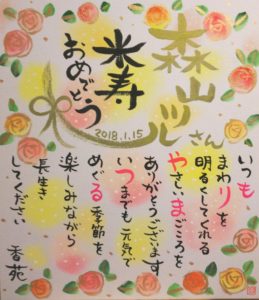 森山ツルさん
米寿
おめでとう
2018.1.15
いつも
まわりを
明るくしてくれる
やさしいまごころを
ありがとうございます
いつまでも元気で
めぐる季節を
楽しみながら
長生き
してください
香苑